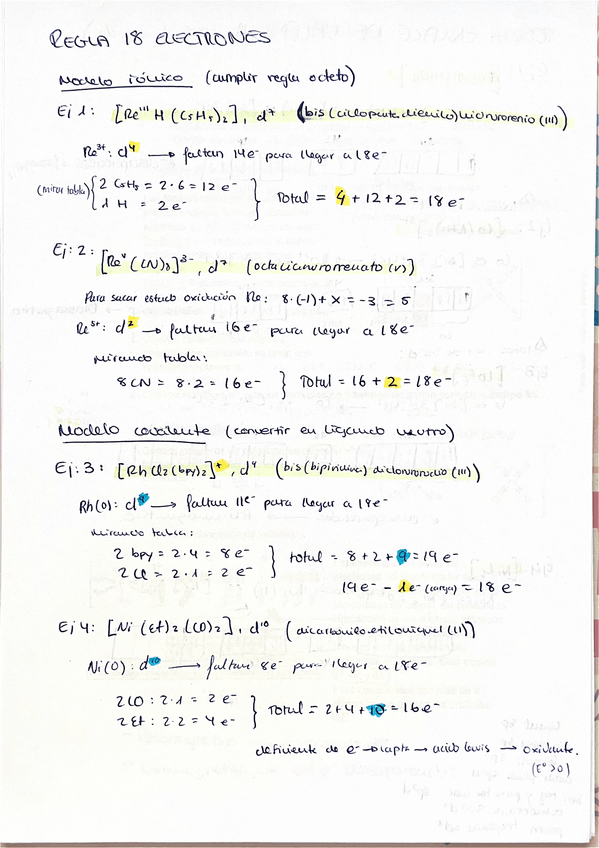 REGLA 18 ELECTRONES
Modelo iónico (cumplir regla octeto)
Ej 1: [Re^III H (C5H5)2], d⁷ (bis(ciclopentadienilo)hidrurorenio (III))
Re³⁺: d⁴ → faltan 14e⁻ para llegar a 18e⁻
(mirar tabla) { 2 C5H5 = 2·6 = 12 e⁻
1 H = 2 e⁻ } Total = 4 + 12 + 2 = 18 e⁻
Ej: 2: [Re^V (CN)8]³⁻, d⁷ (octacianurorrenato (V))
Para sacar estado oxidación Re: 8·(-1) + X = -3 = 5
Re⁵⁺: d² → faltan 16e⁻ para llegar a 18e⁻
Mirando tabla:
8 CN = 8·2 = 16e⁻ } Total = 16 + 2 = 18e⁻
Modelo covalente (convertir en ligando neutro)
Ej: 3: [Rh Cl2 (bpy)2]⁺, d⁴ (bis(bipiridina)diclorurorodio (III))
Rh(0): d⁹ → faltan 11e⁻ para llegar a 18e⁻
Mirando tabla:
2 bpy = 2·4 = 8e⁻
2 Cl = 2·1 = 2 e⁻ } total = 8 + 2 + 9 = 19 e⁻
19e⁻ - 1e⁻ (carga) = 18 e⁻
Ej 4: [Ni (Et)2 (CO)2], d¹⁰ (dicarboniloetiloniquel (II))
Ni(0): d¹⁰ → faltan 8e⁻ para llegar a 18e⁻
2 CO: 2·1 = 2 e⁻
2 Et: 2·2 = 4 e⁻ } Total = 2 + 4 + 10 = 16 e⁻
deficiente de e⁻ → capta → acido lewis → oxidante.
(E° > 0)